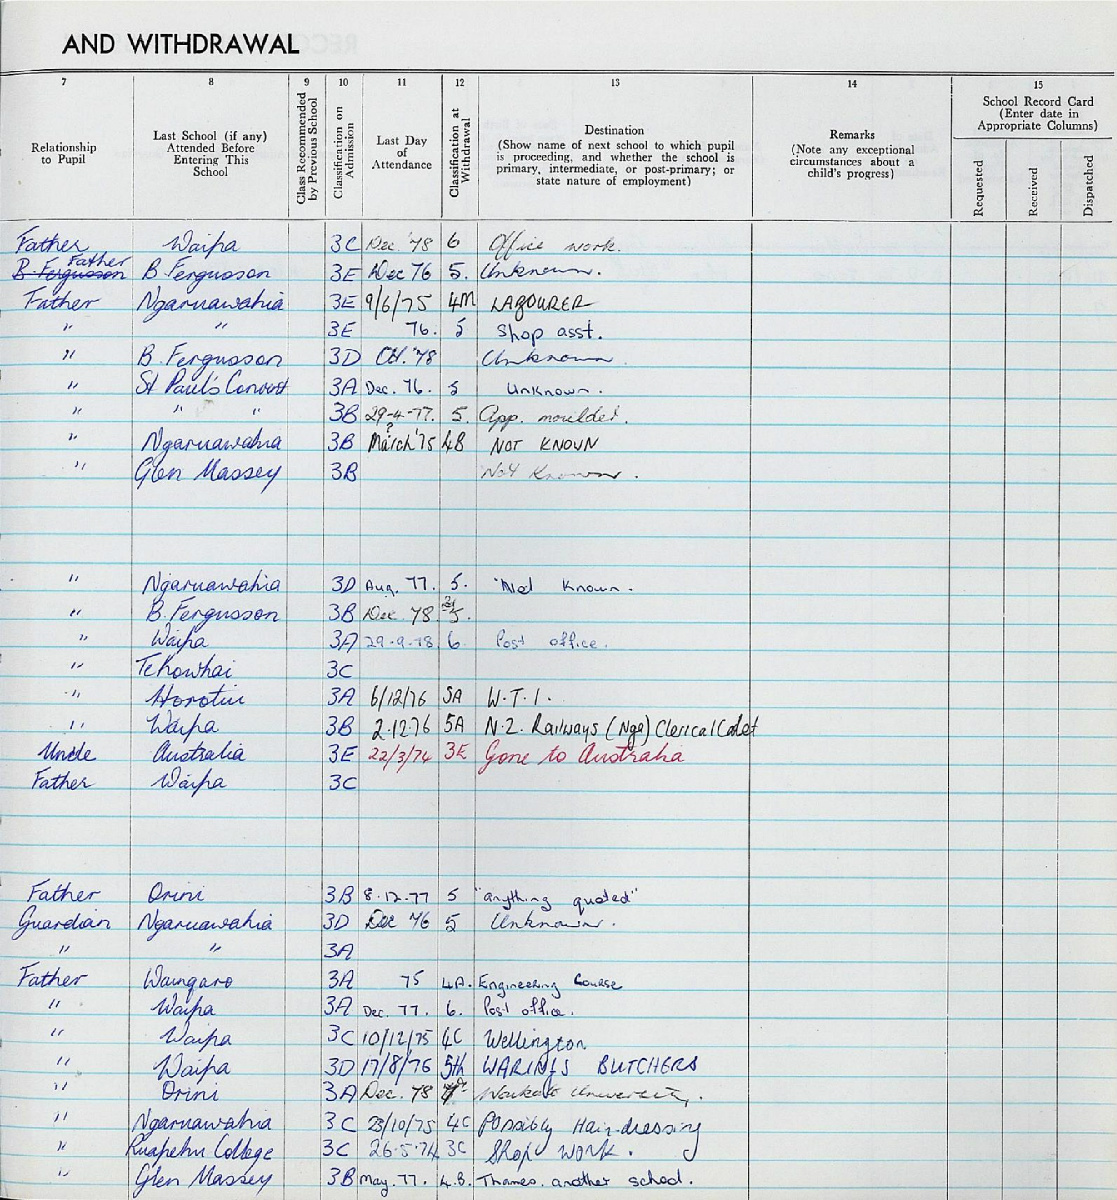 AND WITHDRAWAL
7 8 9 10 11 12 13 14 15
Relationship to Pupil
Last School (if any) Attended Before Entering This School
Class Recommended by Previous School
Classification on Admission
Last Day of Attendance
Classification at Withdrawal
Destination
(Show name of next school to which pupil is proceeding, and whether the school is primary, intermediate, or post-primary; or state nature of employment)
Remarks
(Note any exceptional circumstances about a child's progress)
School Record Card
(Enter date in Appropriate Columns)
Requested
Received
Dispatched
Father Waipa 3C Dec '78 6 Office work.
B. Fergusson Father B. Fergusson 3E Dec 76 5. Unknown.
Father Ngaruawahia 3E 9/6/75 4M LABOURER
" " 3E 76. 5 Shop asst.
" B. Fergusson 3D Oct. '78 Unknown
" St Paul's Convent 3A Dec. 76. 5 Unknown.
" " " 3B 29-4-77. 5. App. moulder.
" Ngaruawahia 3B March ? '75 4B NOT KNOWN
" Glen Massey 3B Not Known.
" Ngaruawahia 3D Aug. 77. 5. Not Known.
" B. Fergusson 3B Dec. 78 5.
" Waipa 3A 29-9-78 6. Post office.
" Tekowhai 3C
" Horotiu 3A 6/12/76 5A W.T.I.
" Waipa 3B 2.12.76 5A N.Z. Railways (Nga) Clerical Cadet
Uncle Australia 3E 22/3/74 3E Gone to Australia
Father Waipa 3C
Father Orini 3B 8.12.77 5 "anything quoted"
Guardian Ngaruawahia 3D Dec 76 5 Unknown.
" " 3A
Father Waingaro 3A 75 4A. Engineering Course
" Waipa 3A Dec. 77. 6. Post office.
" Waipa 3C 10/12/75 4C Wellington
" Waipa 3D 17/8/76 5th WARINGS BUTCHERS
" Orini 3A Dec. 78 Waikato University.
" Ngaruawahia 3C 23/10/75 4C Possibly Hairdressing
" Ruapehu College 3C 26-5-74 3C Shop work.
" Glen Massey 3B May. 77. 4.B. Thames. another school.